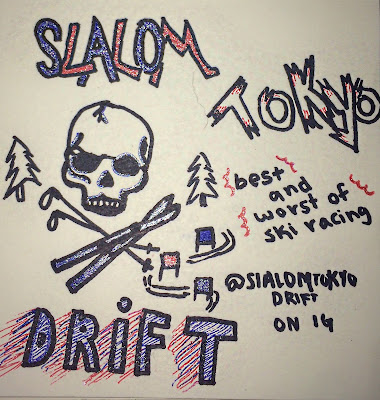 SLALOM
TOKYO
best
and
worst of
ski racing
@SlALOMTOKYO
DRIFT
ON IG
DRiFT